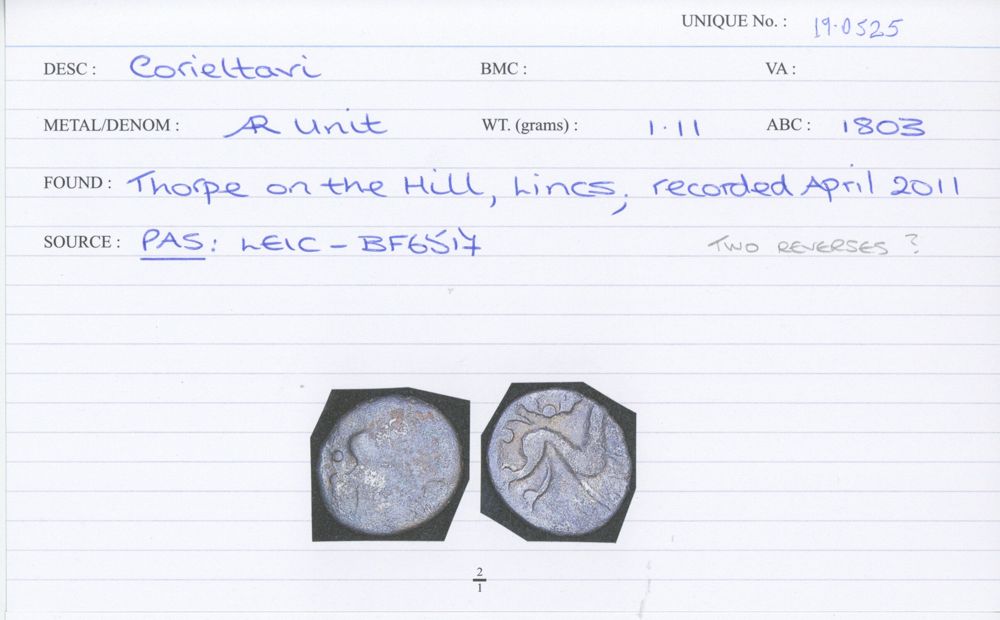 UNIQUE No. : 19.0525
DESC : Corieltavi BMC : VA :
METAL/DENOM : AR Unit WT. (grams) : 1.11 ABC : 1803
FOUND : Thorpe on the Hill, Lincs; recorded April 2011
SOURCE : PAS: LEIC - BF6517
TWO REVERSES ?
2
1